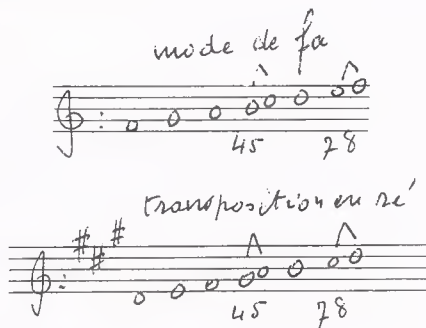 mode de fa
45 78
transposition en ré
45 78